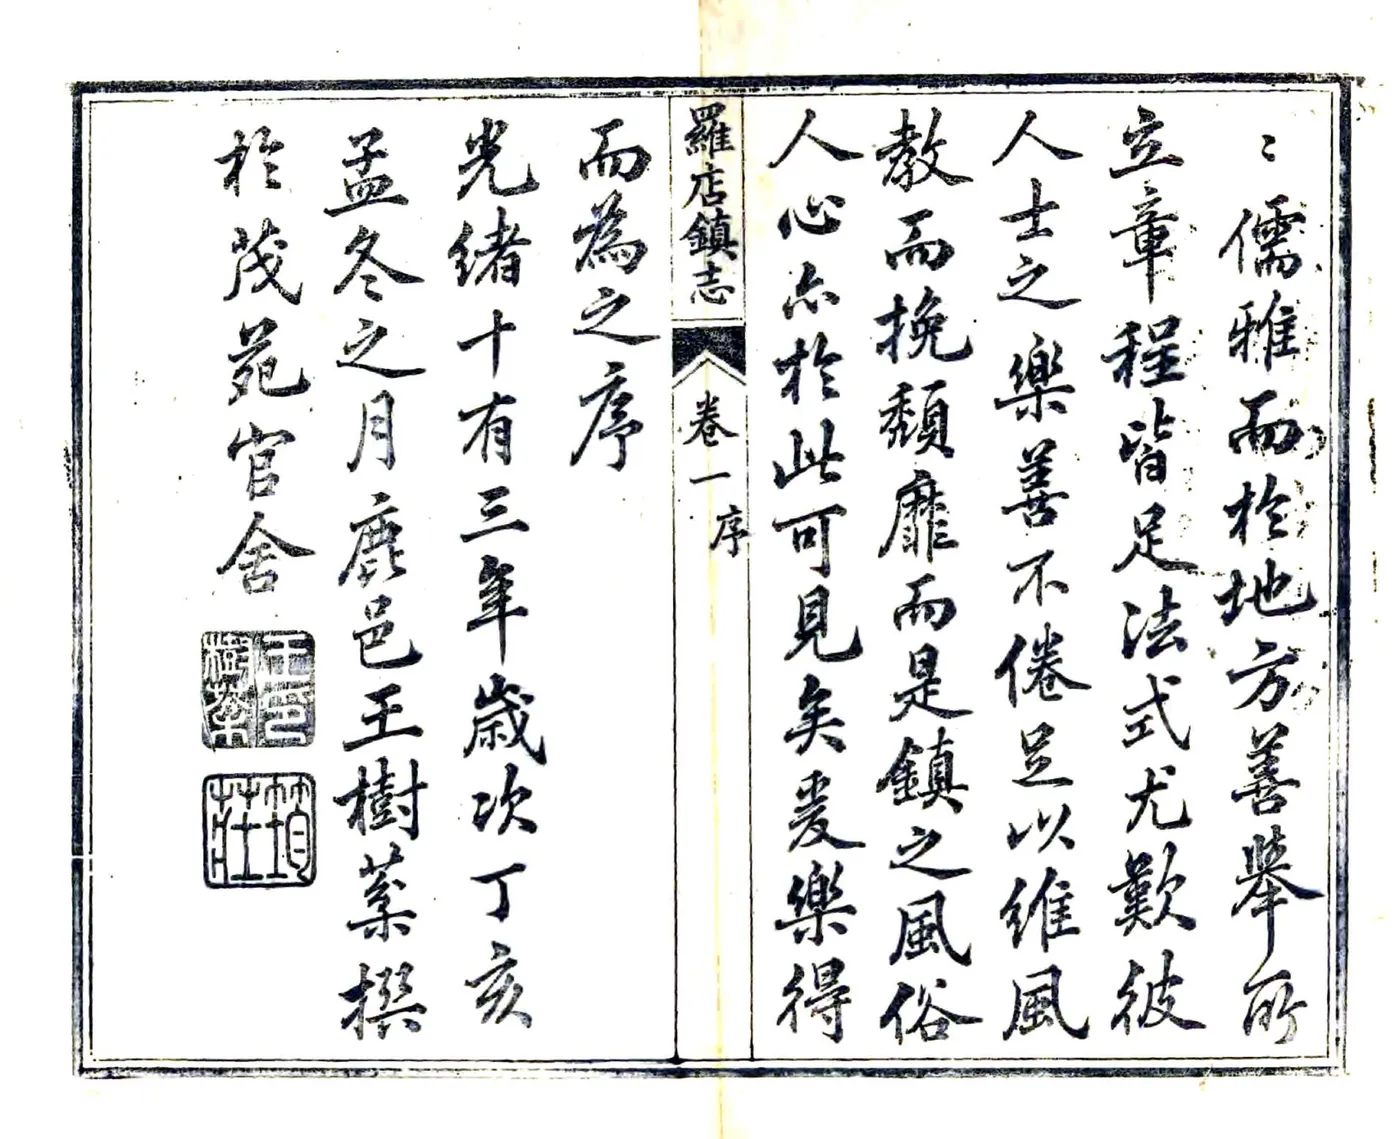 〻儒雅而於地方善舉所
立章程皆足法式尤歎彼
人士之樂善不倦足以維風
教而挽頹靡而是鎮之風俗
人心亦於此可見矣爰樂得
羅店鎮志
卷一
序
而為之序
光緒十有三年歲次丁亥
孟冬之月鹿邑王樹棻撰
於茂苑官舍
王印樹棻
筠莊